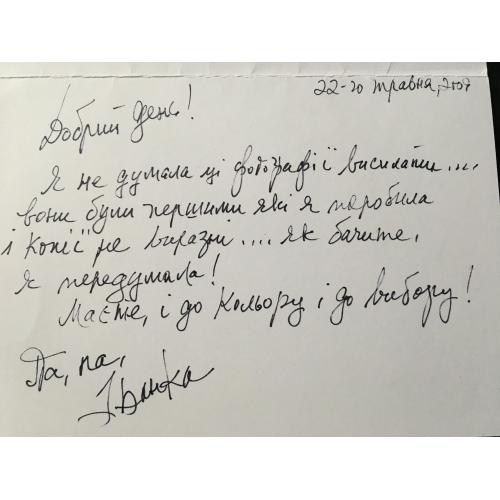 22-го травня, 2007
Добрий день!
Я не думала ці фотографії висилати....
вони були першими які я поробила
і копії не виразні.... як бачите,
я передумала!
Маєте, і до кольору і до вибору!
Па, па,